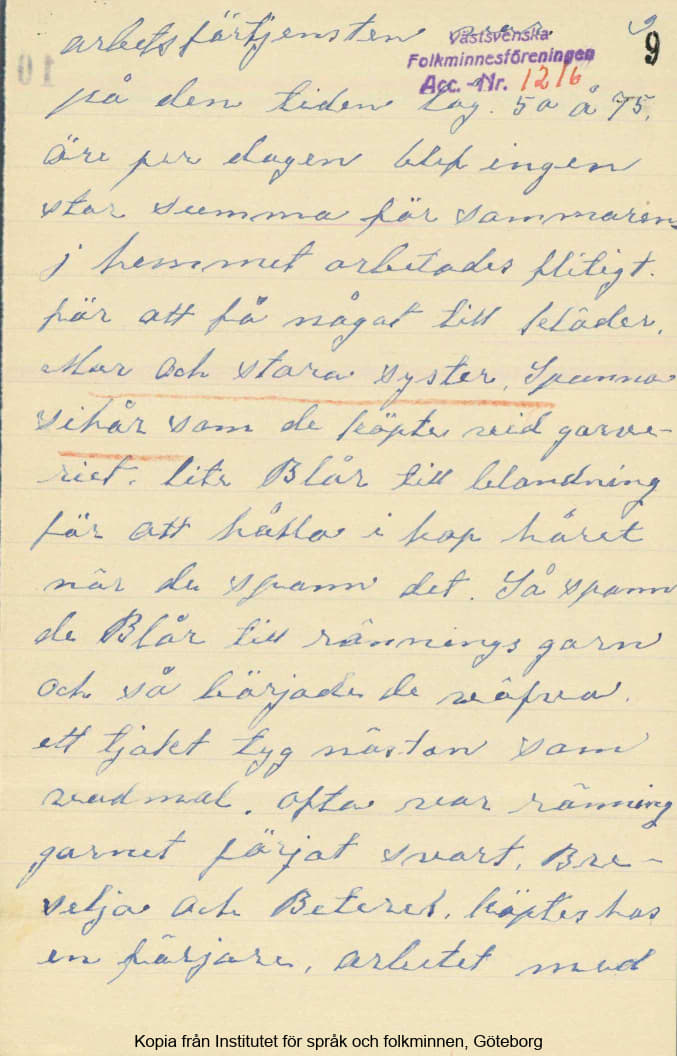 arbetsförtjensten var
2
9
Västsvenska
Folkminnesföreningen
Acc. Nr. 1216
10
på den tiden låg. 50 å 75.
öre per dagen blef ingen
stor summa för sommaren
j hemmet arbetades flitigt.
för att få något till kläder.
Mor och stora syster, Spanna
sihår som de köpte vid garve-
riet. lite Blår till blandning
för att hålla i hop håret
när de spann det. Så spann
de Blår till rännings garn
och så började de väfva.
ett tjokt tyg nästan som
vadmal. ofta var ränning
garnet färjat svart, Bre-
selja och Beterel. köptes hos
en färjare, arbetet med
Kopia från Institutet för språk och folkminnen, Göteborg